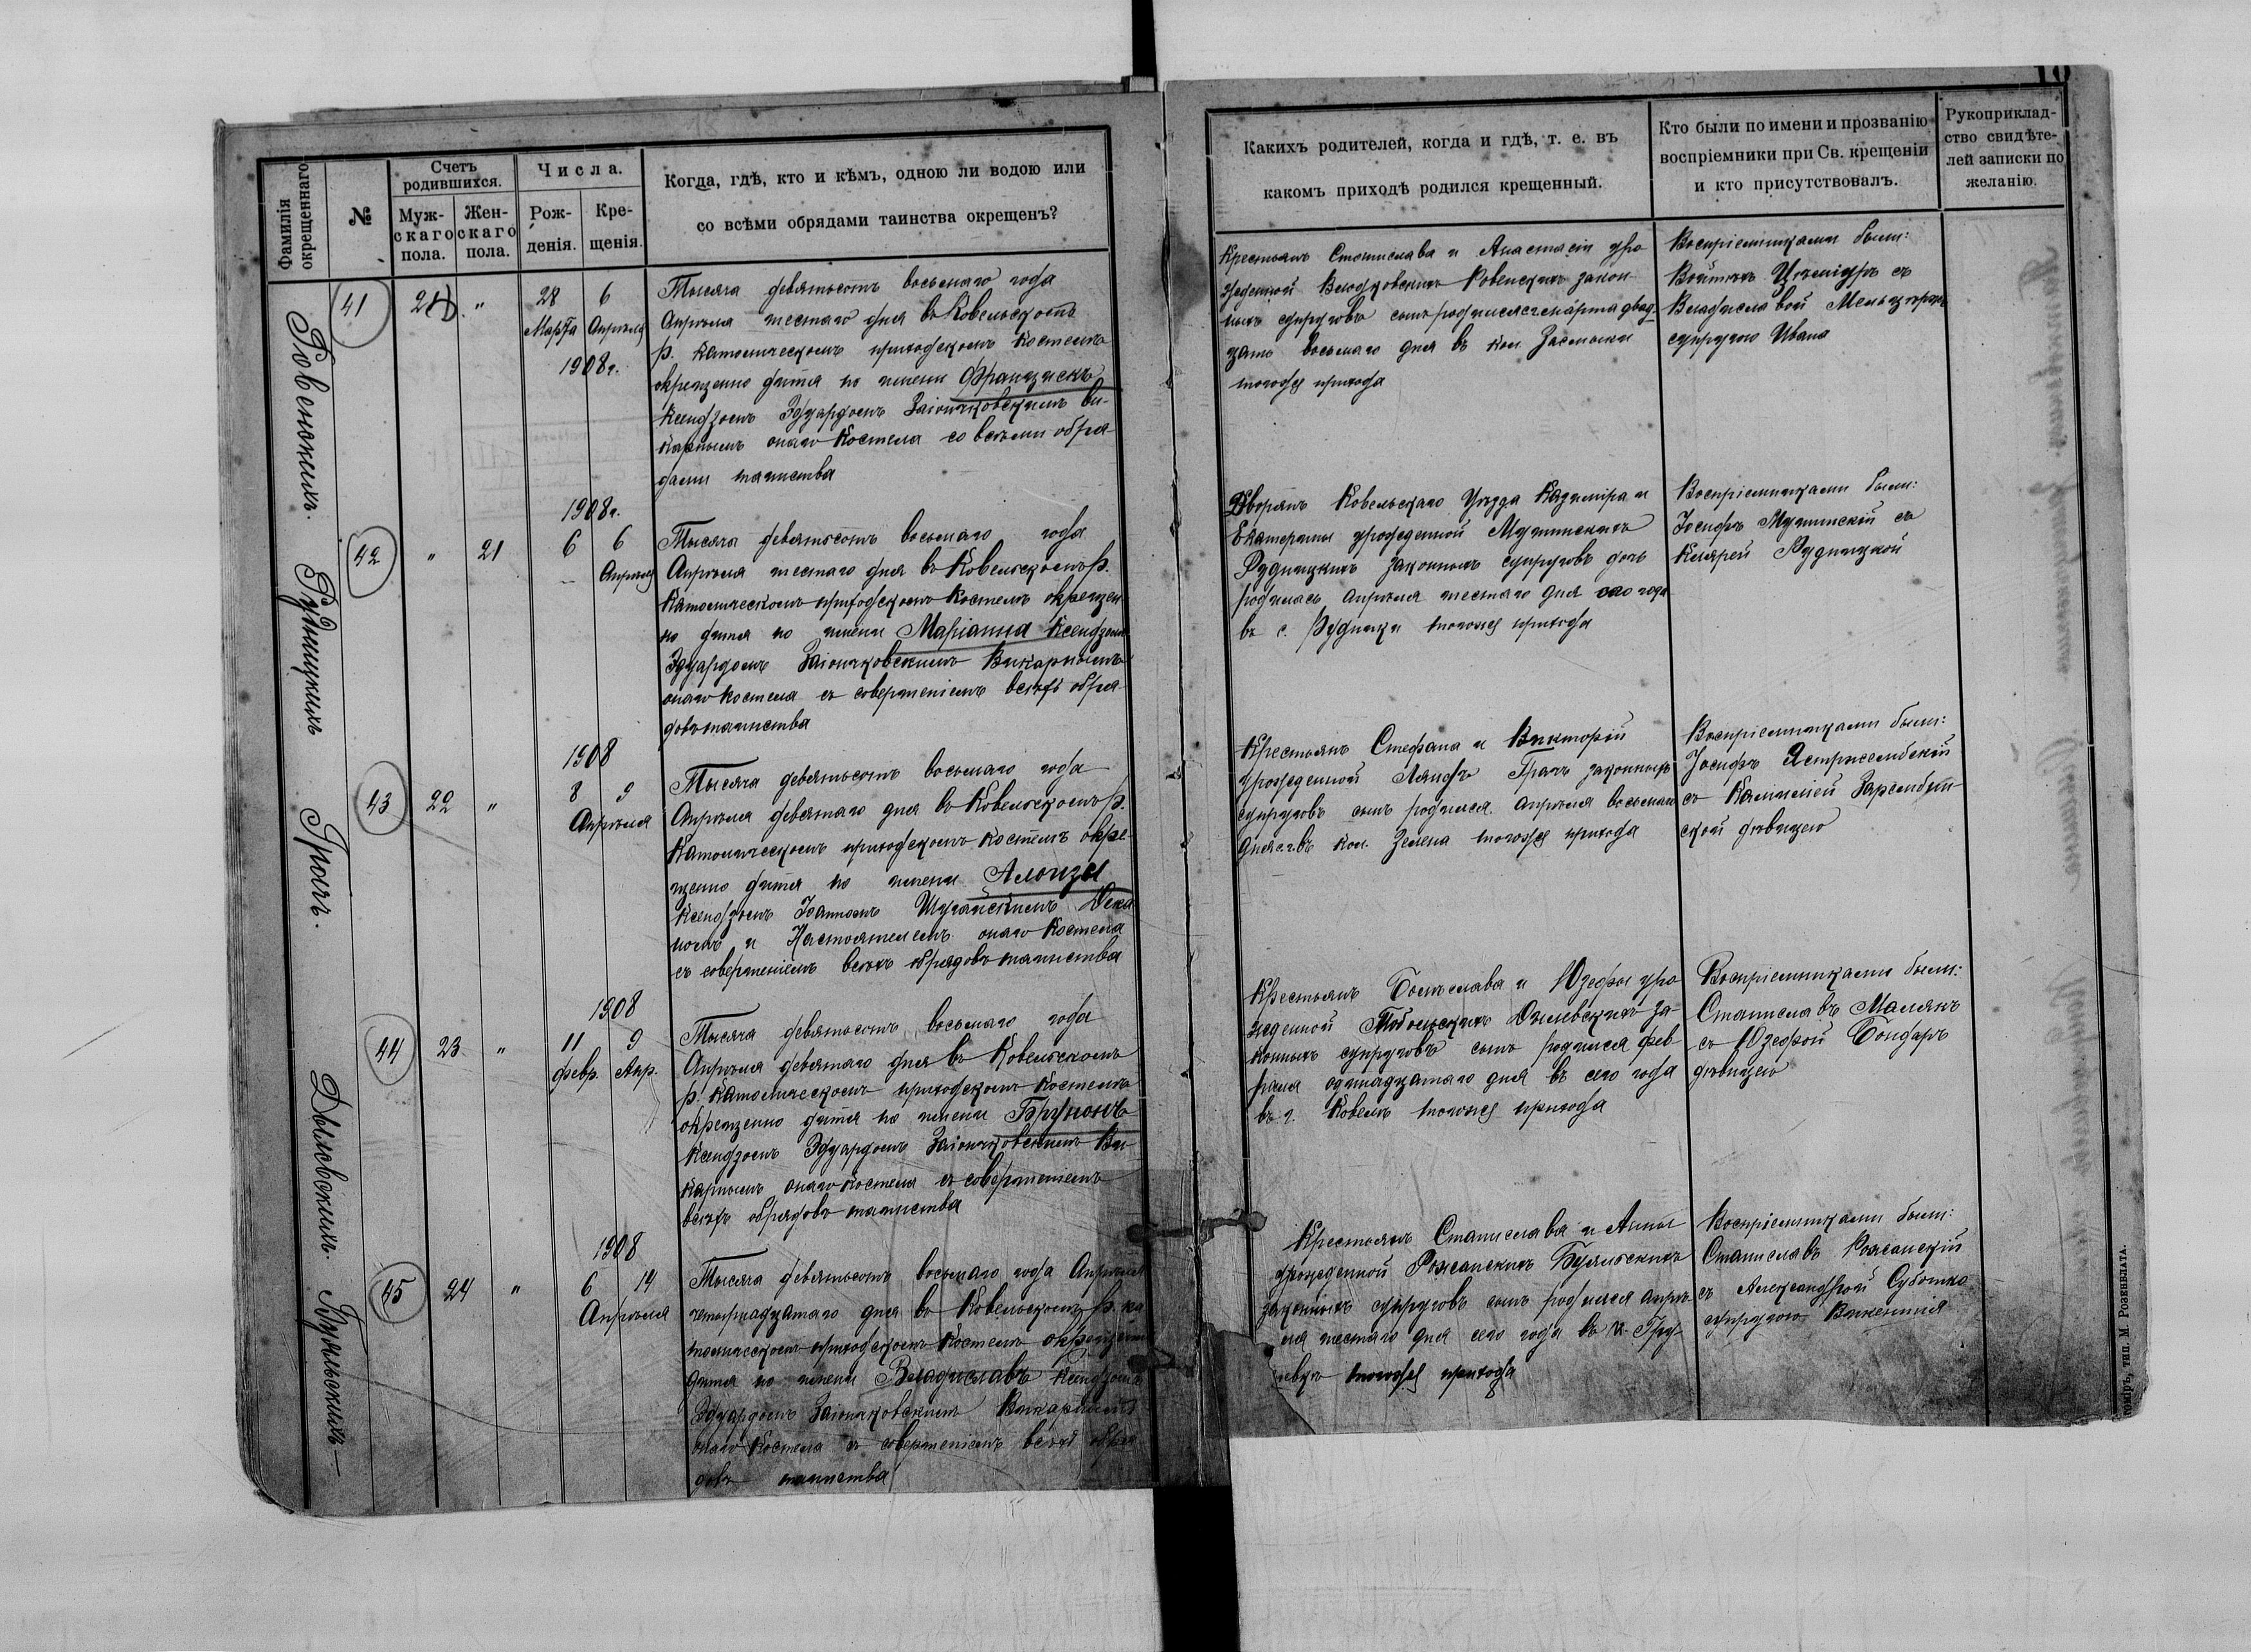 10
Фамилія окрещеннаго.
№
Счетъ родившихся.
Муж- скаго пола.
Жен- скаго пола.
Числа.
Рож- денія.
Кре- щенія.
Когда, гдѣ, кто и кѣмъ, одною ли водою или
со всѣми обрядами таинства окрещенъ?
Какихъ родителей, когда и гдѣ, т. е. въ
какомъ приходѣ родился крещенный.
Кто были по имени и прозванію
воспріемники при Св. крещеніи
и кто присутствовалъ.
Рукоприклад-
ство свидѣте-
лей записки по
желанію.
41
"
28 6
Марта Апрѣля
1908 г.
Тысяча девятьсотъ восьмаго года
Апрѣля шестаго дня въ Ковельскомъ
р. Католическомъ приходскомъ Костелѣ
окрещено дитя по имени Францискъ
Ксендзомъ Эдуардомъ Заіончковскимъ Ви-
карнымъ онаго Костела со всѣми обря-
дами таинства
Крестьянъ Станислава и Анастасіи уро
жденной
ныхъ супруговъ сынъ родился марта двад-
цать восьмаго дня въ кол.
тогожъ прихода
Воспріемниками были:
съ
супругою Ивана
Рудницкихъ
42
" 21
1908 г.
6 6
Апрѣля
Тысяча девятьсотъ восьмаго года
Апрѣля шестаго дня въ Ковельскомъ р.
Католическомъ приходскомъ Костелѣ окрещен
но дитя по имени Маріанна Ксендзомъ
Эдуардомъ Заіончковскимъ Викарнымъ
онаго Костела съ совершеніемъ всѣхъ обря-
довъ таинства
Дворянъ Ковельскаго Уѣзда Казиміра и
Екатерины урожденной
Рудницкихъ законныхъ супруговъ дочь
родилась Апрѣля шестаго дня сего года
въ с. Рудники тогожъ прихода
Воспріемниками были:
Іосифъ съ
Рудницкой
Грачъ.
43
22 "
1908
8 9
Апрѣля
Тысяча девятьсотъ восьмаго года
Апрѣля девятаго дня въ Ковельскомъ р.
Католическомъ приходскомъ Костелѣ окре-
щено дитя по имени Алоизы
Ксендзомъ Іоанномъ Дека
номъ и Настоятелемъ онаго Костела
съ совершеніемъ всѣхъ обрядовъ таинства
Крестьянъ Стефана и Викторіи
урожденной Грачъ законныхъ
супруговъ сынъ родился Апрѣля восьмаго
дня въ кол. Зелена тогожъ прихода
Воспріемниками были:
Іосифъ Ястржембскій
съ
ской дѣвицею
Дылевскихъ.
44
23 "
1908
11 9
Февр. Апр.
Тысяча девятьсотъ восьмаго года
Апрѣля девятаго дня въ Ковельскомъ
р. Католическомъ приходскомъ Костелѣ
окрещено дитя по имени Брунонъ
Ксендзомъ Эдуардомъ Заіончковскимъ Ви-
карнымъ онаго Костела съ совершеніемъ
всѣхъ обрядовъ таинства
Крестьянъ Болеслава и Юзефы уро
жденной Дылевскихъ за-
конныхъ супруговъ сынъ родился фев-
раля одинадцатаго дня сего года
въ г. Ковелѣ тогожъ прихода
Воспріемниками были:
Станиславъ
съ Юзефой Бондаръ
дѣвицею
45
24 "
1908
6 14
Апрѣля
Тысяча девятьсотъ восьмаго года Апрѣля
четырнадцатаго дня въ Ковельскомъ р. ка
толическомъ приходскомъ Костелѣ окрещено
дитя по имени Владиславъ Ксендзомъ
Эдуардомъ Заіончковскимъ Викарнымъ
онаго Костела съ совершеніемъ всѣхъ обря
довъ таинства
Крестьянъ Станислава и Анны
урожденной
законныхъ супруговъ сынъ родился апрѣ-
ля шестаго дня сего года въ к.
тогожъ прихода
Воспріемниками были:
Станиславъ
съ Александрой
супругою Викентія
тип. М. Розенблата.